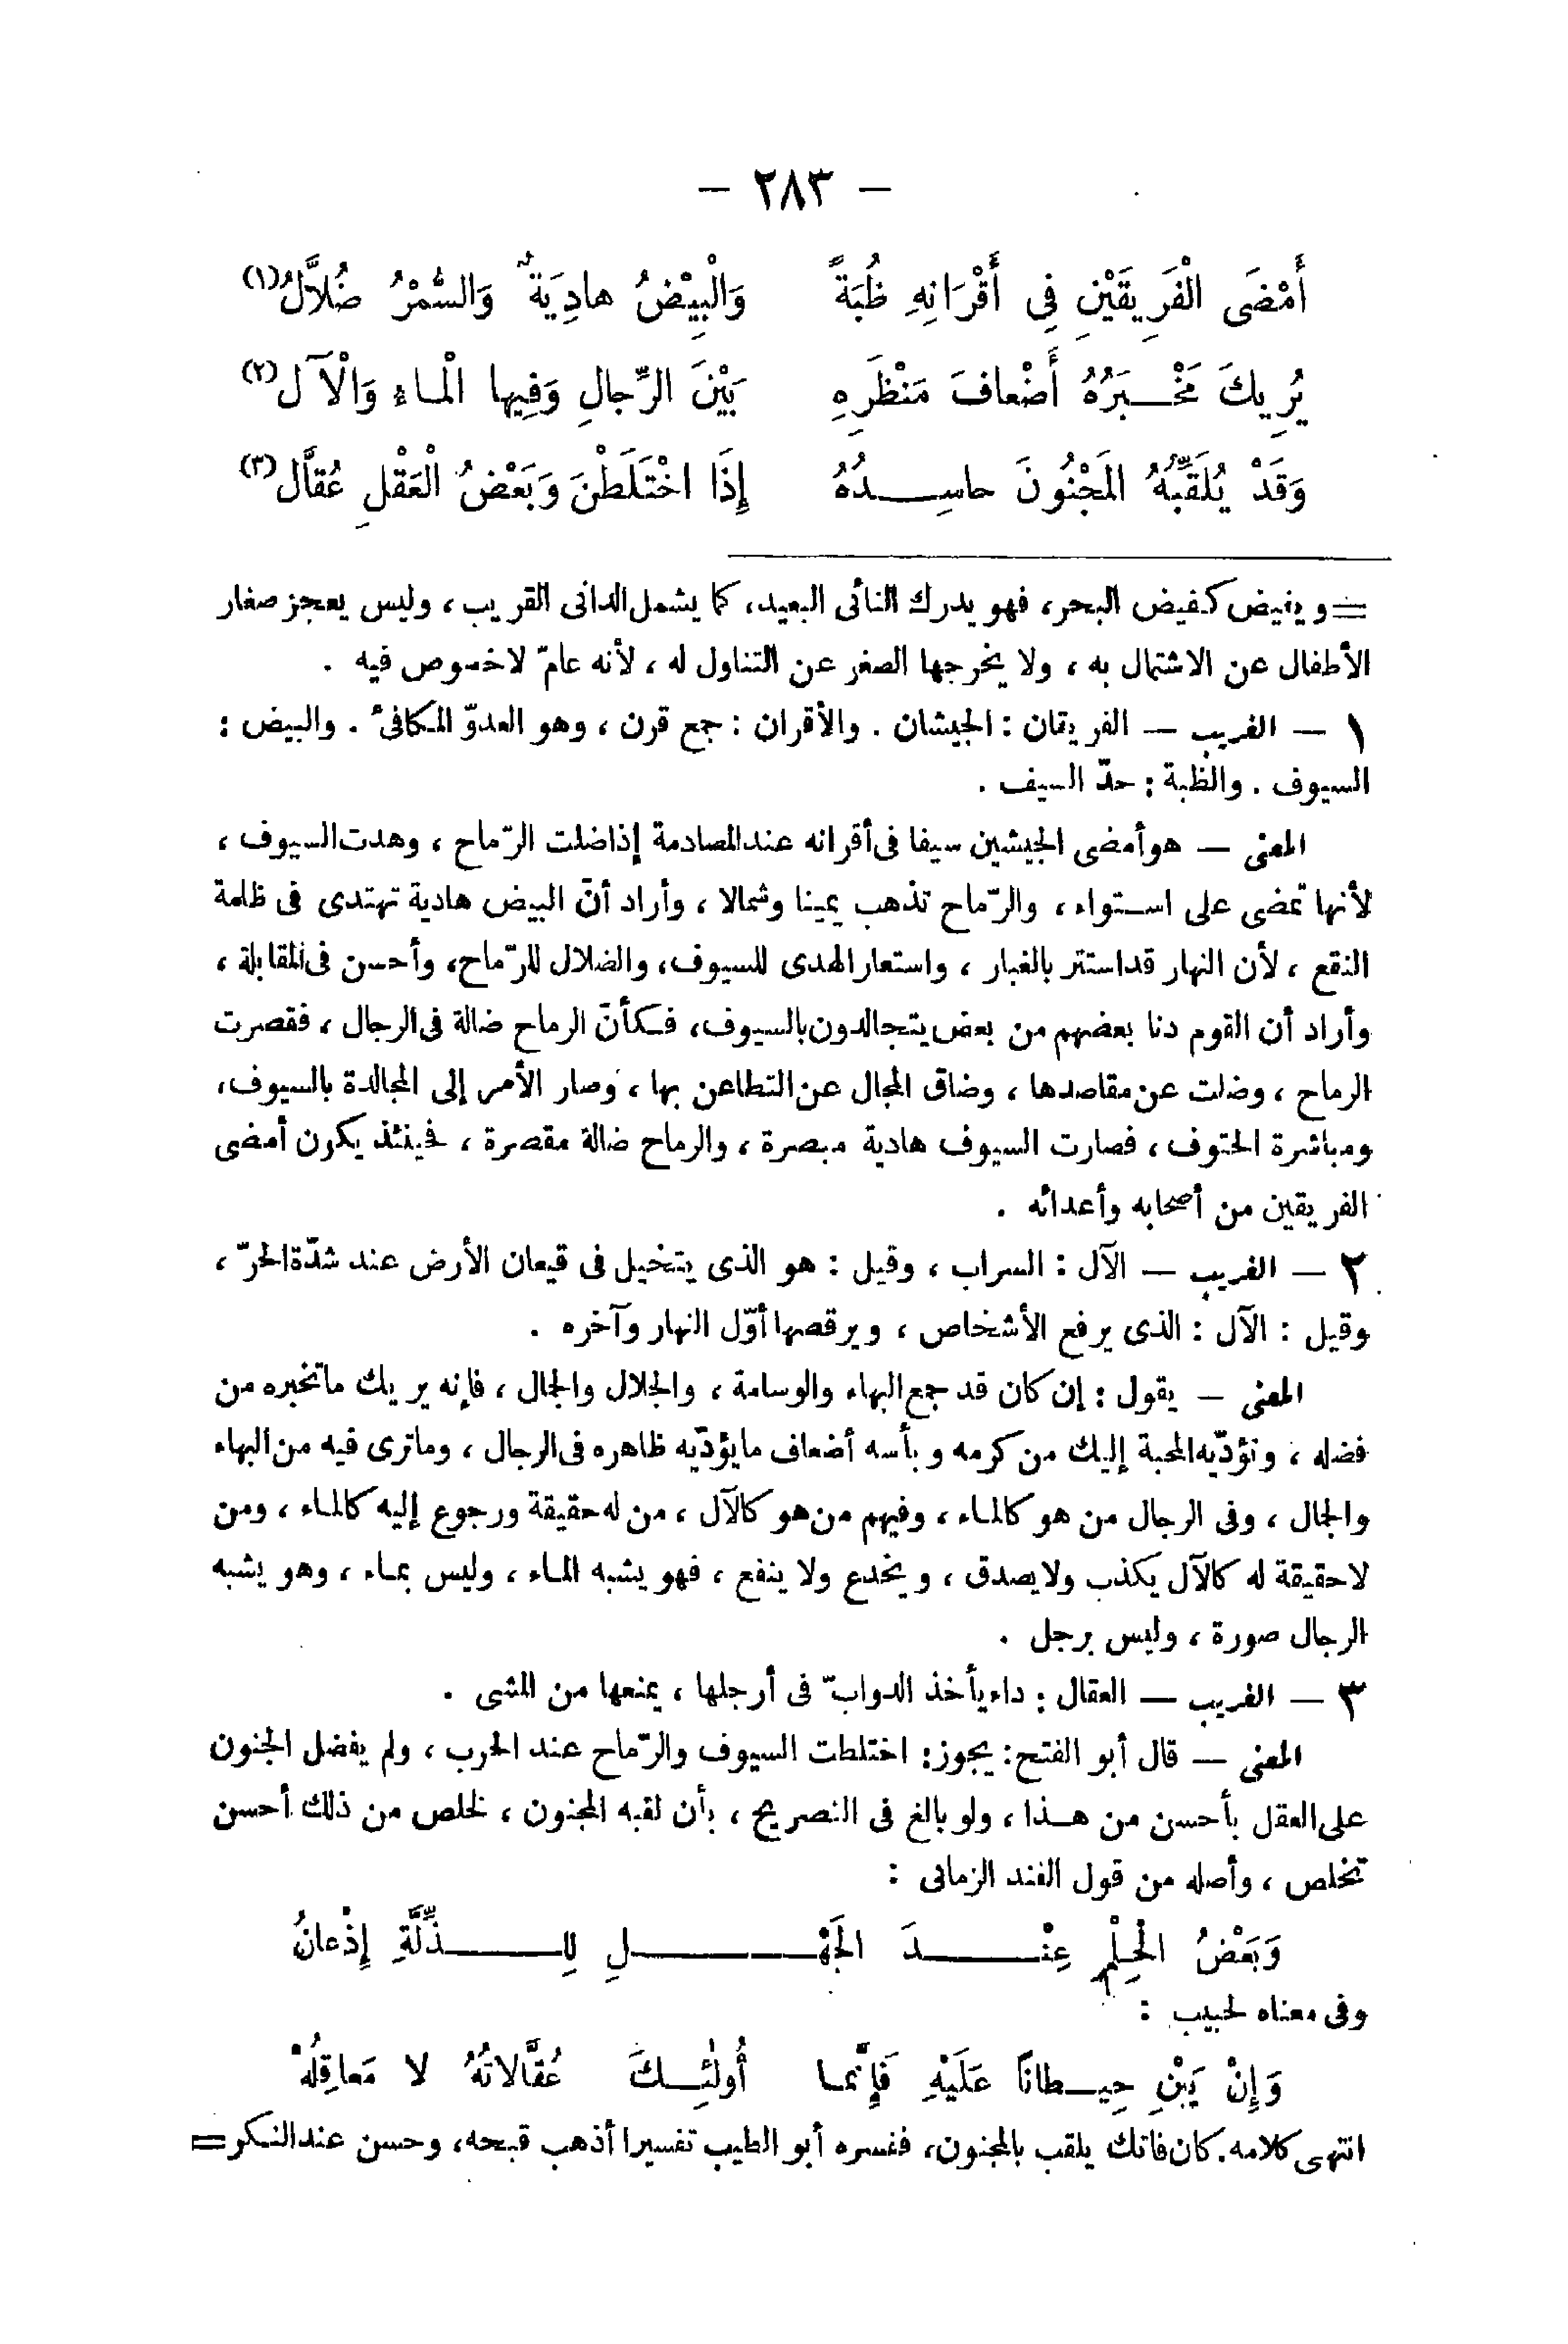 — ٢٨٣ —
أَمْضَى الْفَرِيقَيْنِ فِى أَقْرَانِهِ ظُبَةً وَالْبِيْضُ هادِيَةٌ وَالسُّمْرُ ضُلاَّلُ(١)
يُرِيكَ مَخْـبَرُهُ أَضْعافَ مَنْظَرِهِ بَيْنَ الرِّجالِ وَفِيها الْماء وَالْآلُ(٢)
وَقَدْ يُلَقِّبُهُ الْمَجْنُونَ حاسِـدُهُ إِذَا اخْتَلَطْنَ وَبَعْضُ الْعَقْلِ عُقَّالُ(٣)
= ويفيض كفيض البحر، فهو يدرك النائى البعيد، كما يشمل الدانى القريب، وليس يعجز صغار
الأطفال عن الاشتمال به، ولا يخرجها الصغر عن التناول له، لأنه عامّ لا خصوص فيه .
١ — الغريب — الفريقان : الجيشان . والأقران : جمع قرن، وهو العدوّ المكافئ . والبيض :
السيوف . والظبة : حدّ السيف .
المعنى — هو أمضى الجيشين سيفا فى أقرانه عند المصادمة إذا ضلت الرّماح، وهدت السيوف،
لأنها تمضى على استواء، والرّماح تذهب يمينا وشمالا، وأراد أنّ البيض هادية تهتدى فى ظلمة
النقع، لأن النهار قد استتر بالغبار، واستعار الهدى للسيوف، والضلال للرّماح، وأحسن فى المقابلة،
وأراد أن القوم دنا بعضهم من بعض يتجالدون بالسيوف، فكأنّ الرماح ضالة فى الرجال، فقصرت
الرماح، وضلت عن مقاصدها، وضاق المجال عن التطاعن بها، وصار الأمر إلى المجالدة بالسيوف،
ومباشرة الحتوف، فصارت السيوف هادية مبصرة، والرماح ضالة مقصرة، فحينئذ يكون أمضى
الفريقين من أصحابه وأعدائه .
٢ — الغريب — الآل : السراب، وقيل : هو الذى يتخيل فى قيعان الأرض عند شدّة الحرّ،
وقيل : الآل : الذى يرفع الأشخاص، ويرقصها أوّل النهار وآخره .
المعنى — يقول : إن كان قد جمع البهاء والوسامة، والجلال والجمال، فإنه يريك ما تخبره من
فضله، وتؤدّيه المحبة إليك من كرمه وبأسه أضعاف ما يؤدّيه ظاهره فى الرجال، وما ترى فيه من البهاء
والجمال، وفى الرجال من هو كالماء، وفيهم من هو كالآل، من له حقيقة ورجوع إليه كالماء، ومن
لا حقيقة له كالآل يكذب ولا يصدق، ويخدع ولا ينفع، فهو يشبه الماء، وليس بماء، وهو يشبه
الرجال صورة، وليس برجل .
٣ — الغريب — العقال : داء يأخذ الدوابّ فى أرجلها، يمنعها من المشى .
المعنى — قال أبو الفتح : يجوز : اختلطت السيوف والرّماح عند الحرب، ولم يفضل الجنون
على العقل بأحسن من هـذا، ولو بالغ فى التصريح، بأن لقبه المجنون، لخلص من ذلك أحسن
تخلص، وأصله من قول الفند الزمانى :
وَبَعْضُ الْحِلْمِ عِنْـدَ الْجَهْـلِ لِلـذِّلَّةِ إِذْعانُ
وفى معناه لحبيب :
وَإِنْ يَبْنِ حِيـطانًا عَلَيْهِ فَإِنَّمـا أُولٰئِـكَ عُقَّالاتُهُ لا مَعاقِلُهْ
انتهى كلامه. كان فاتك يلقب بالمجنون، ففسره أبو الطيب تفسيرا أذهب قبحه، وحسن عند النكر =